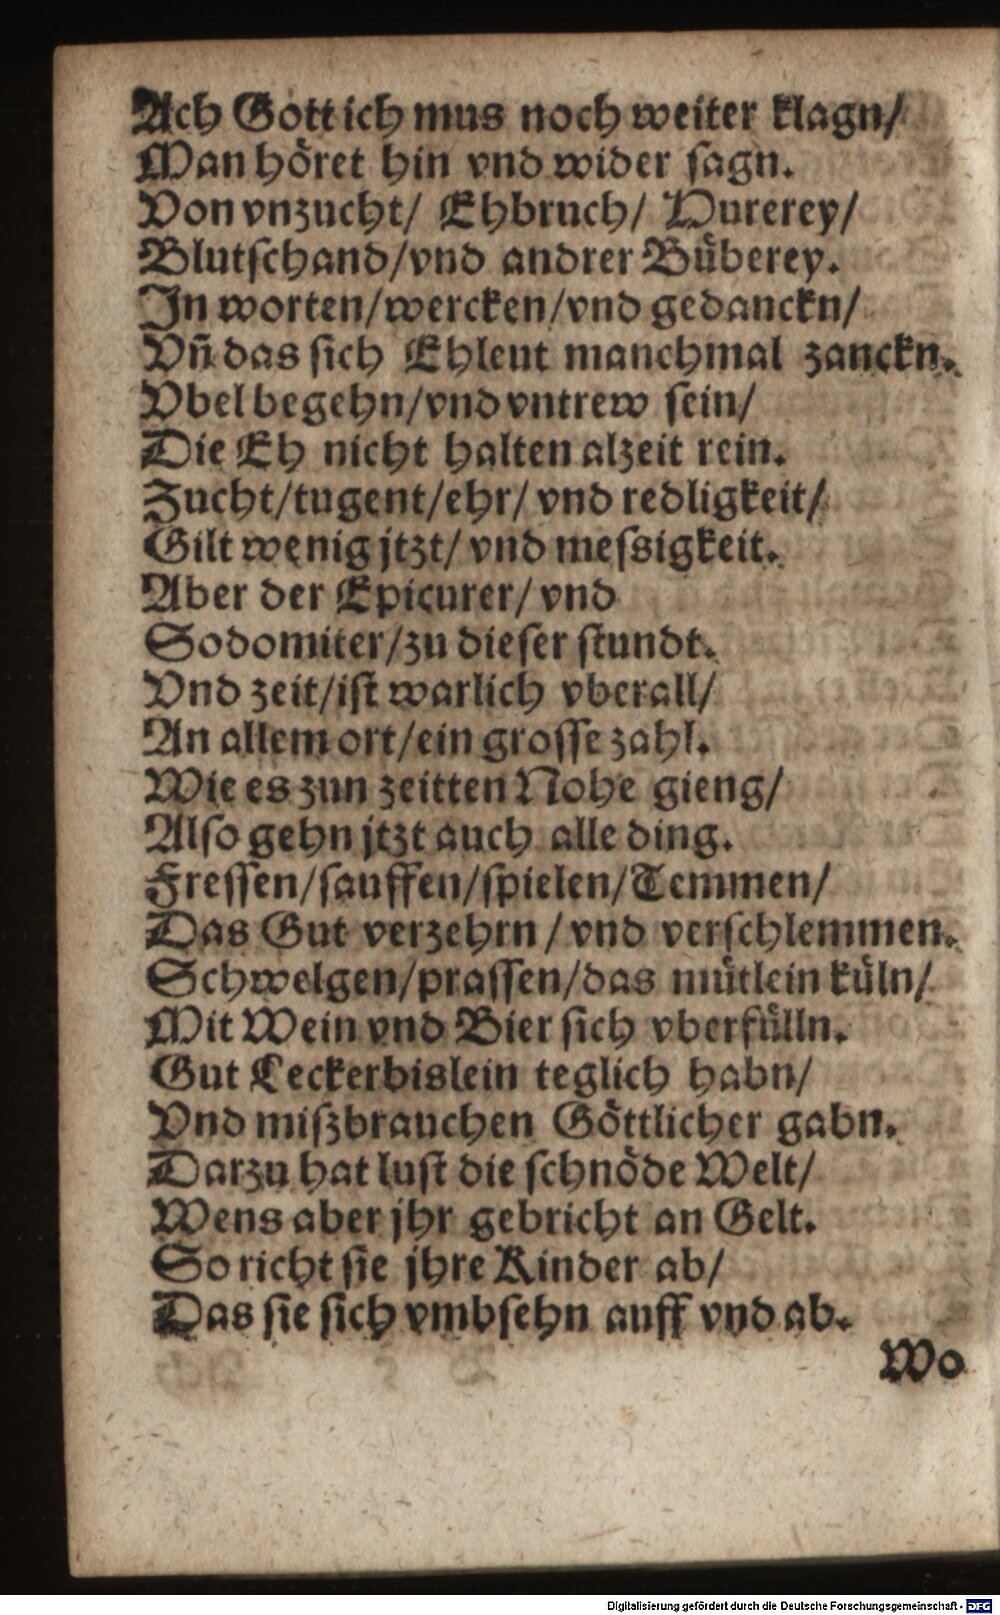 Ach Gott ich mus noch weiter klagn/
Man höret hin vnd wider sagn.
Von vnzucht/ Ehbruch/ Hurerey/
Blutschand/vnd andrer Büberey.
In worten/wercken/vnd gedanckn/
Vñ das sich Ehleut manchmal zanckn.
Vbel begehn/vnd vntrew sein/
Die Eh nicht halten alzeit rein.
Zucht/tugent/ehr/ vnd redligkeit/
Gilt wenig jtzt/ vnd messigkeit.
Aber der Epicurer/ vnd
Sodomiter/zu dieser stundt.
Vnd zeit/ist warlich vberall/
An allem ort/ein grosse zahl.
Wie es zun zeitten Nohe gieng/
Also gehn jtzt auch alle ding.
Fressen/sauffen/spielen/Temmen/
Das Gut verzehrn/ vnd verschlemmen.
Schwelgen/prassen/das mütlein küln/
Mit Wein vnd Bier sich vberfülln.
Gut Leckerbislein teglich habn/
Vnd miszbrauchen Göttlicher gabn.
Darzu hat lust die schnöde Welt/
Wens aber jhr gebricht an Gelt.
So richt sie jhre Kinder ab/
Das sie sich vmbsehn auff vnd ab.
Wo
Digitalisierung gefördert durch die Deutsche Forschungsgemeinschaft - DFG